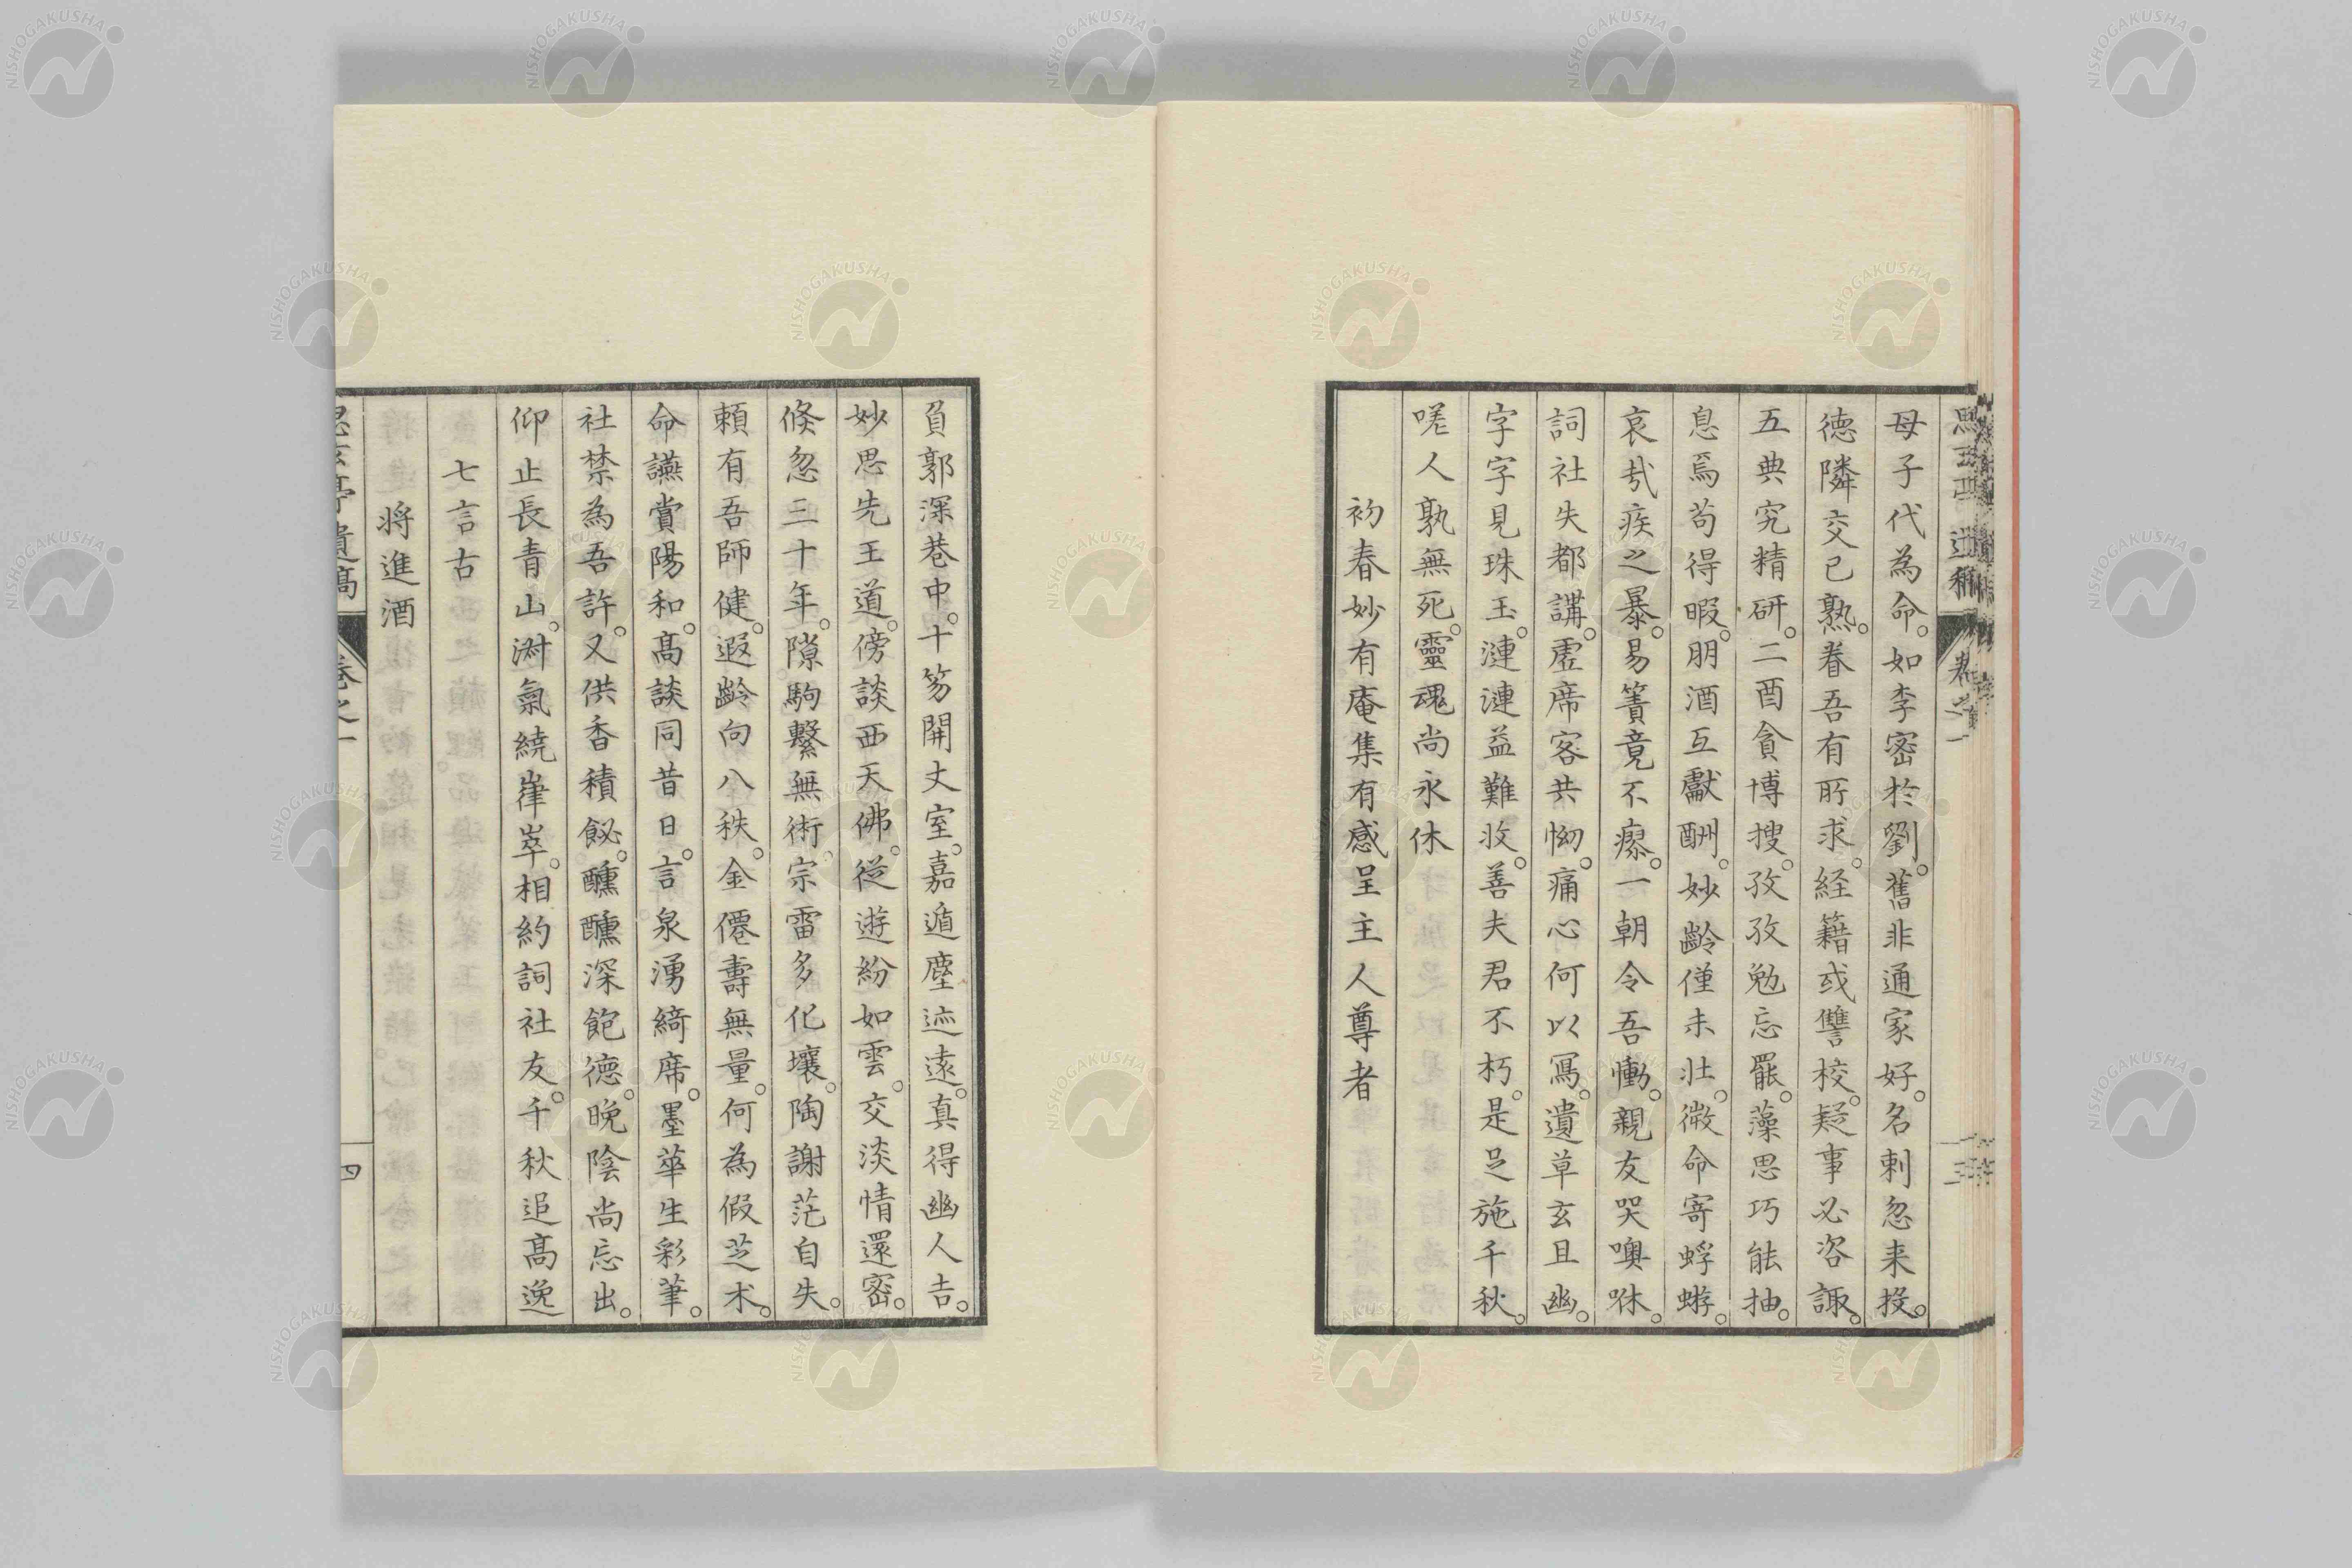 母子代為命。如李密於劉。舊非通家好。名刺忽来投。
德隣交已熟。眷吾有所求。経籍或讐校。疑事必咨諏。
五典究精研。二酉貪博搜。孜孜勉忘罷。藻思巧能抽。
息焉苟得暇。朋酒互獻酬。妙齡僅未壮。微命寄蜉蝣。
哀哉疾之暴。易簀竟不瘳。一朝令吾慟。親友哭噢咻。
詞社失都講。虚席客共怮。痛心何以寫。遺草玄且幽。
字字見珠玉。漣漣益難收。善夫君不朽。是足施千秋。
嗟人孰無死。靈魂尚永休
初春妙有庵集有感呈主人尊者
負郭深巷中。十笏開丈室。嘉遁塵迹遠。真得幽人吉。
妙思先王道。傍談西天佛。從遊紛如雲。交淡情還密。
倏忽三十年。隙駒繫無術。宗雷多化壤。陶謝茫自失。
頼有吾師健。遐齡向八秩。金僊壽無量。何為假芝朮。
命讌賞陽和。髙談同昔日。言泉湧綺席。墨華生彩筆。
社禁為吾許。又供香積飶。醺醺深飽德。晚陰尚忘出。
仰止長青山。淑氣繞嵂崒。相約詞社友。千秋追髙逸
七言古
将進酒
卷之一
四
NISHOGAKUSHA